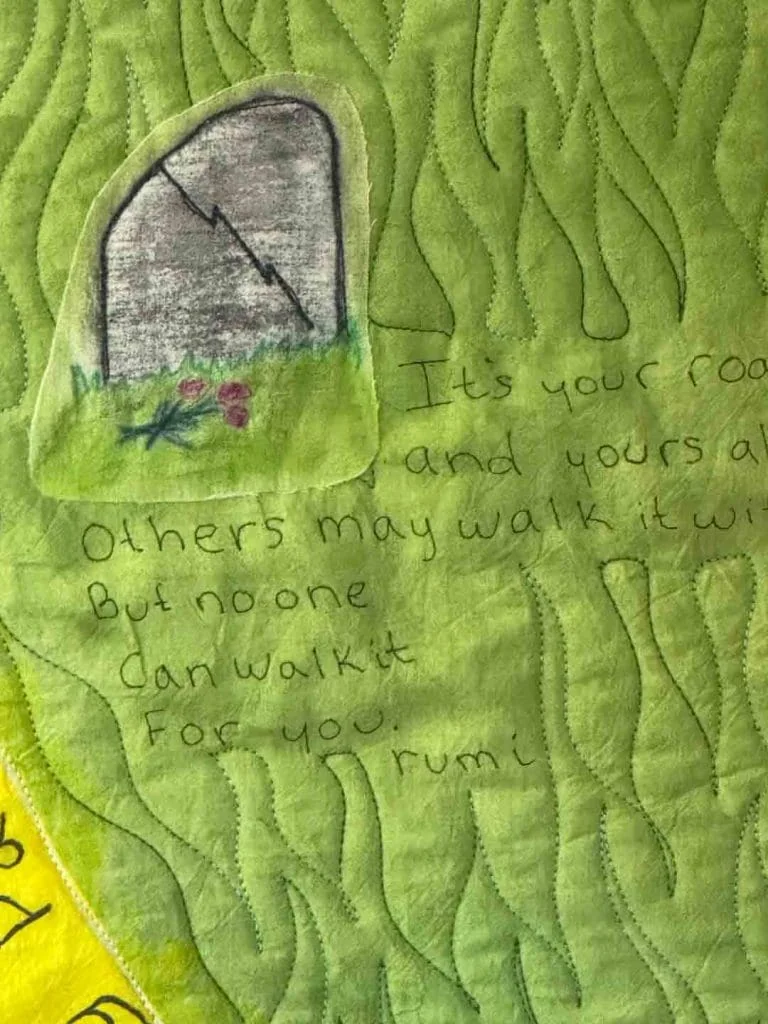 It's your roa
and yours al
Others may walk it wit
But no one
Can walk it
For you.
rumi